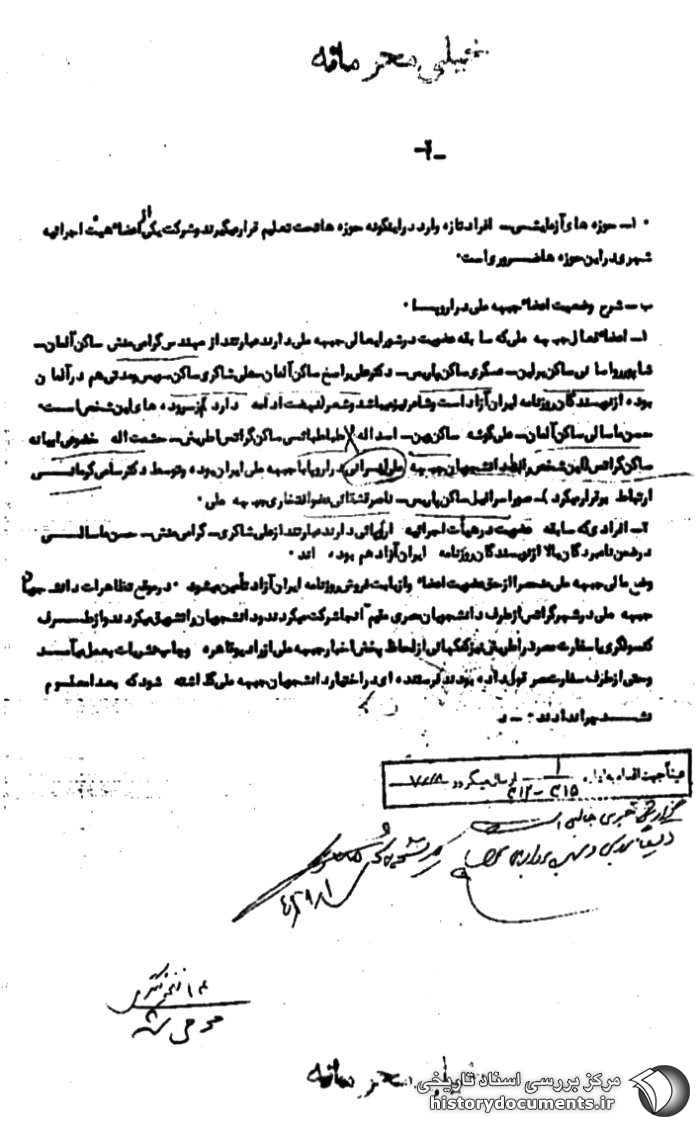 خیلی محرمانه
-۲-
۱- حوزه های آزمایشی- افراد تازه وارد در اینگونه حوزه ها تحت تعلیم قرار میگیرند و شرکت یکی از اعضاء هیئت اجرائیه
شهری در این حوزه ها ضروری است.
ب- شرح وضعیت اعضاء جبهه ملی در اروپا .
۱- اعضاء فعال جبهه ملی که سابقه عضویت در شورایعالی جبهه ملی دارند عبارتند از مهندس گرامی منش ساکن آلمان-
شاپور رواسانی ساکن برلین- عسگری ساکن پاریس- دکتر علی راسخ ساکن آلمان- علی شاکری ساکن سویس و مدتی هم در آلمان
بوده از نویسندگان روزنامه ایران آزاد است و شاعر نیز میباشد و شعر نهضت ادامه دارد از سروده های این شخص است.
حسن ماسالی ساکن آلمان- علی گوشه ساکن بن- اسداله طباطبائی ساکن گراتس اطریش- حشمت اله
ساکن گراتس (این شخص رابط دانشجویان جبهه ملی در اروپا با جبهه ملی ایران بوده و توسط دکتر سامی کرمانی
ارتباط برقرار میکرد)- صور اسرافیل ساکن پاریس- ناصر قشقائی عضو افتخاری جبهه ملی .
۲- افرادی که سابقه عضویت در هیأت اجرائیه اروپائی دارند عبارتند از علی شاکری- گرامی منش- حسن ماسالی
در ضمن نامبردگان بالا از نویسندگان روزنامه ایران آزاد هم بوده اند .
وضع مالی جبهه ملی منحصرا از حق عضویت اعضاء و از بابت فروش روزنامه ایران آزاد تأمین میشود . در موقع تظاهرات دانشجویان
جبهه ملی در شهر گراتس از طرف دانشجویان مصری مقیم آنجا شرکت میکردند و دانشجویان را تشویق میکردند و از طرف
کنسولگری یا سفارت مصر در اطریش نیز کمکهائی از لحاظ پخش اخبار جبهه ملی از رادیو قاهره و چاپ نشریات بعمل میآمد
و حتی از طرف سفارت مصر قول داده بودند فرستنده ای در اختیار دانشجویان جبهه ملی گذاشته شود که بعدا معلوم
نشد
عینأ جهت اقدام به اداره ۳۱۲-۳۱۵ ارسال میگردد
گزارش خبری جالبی است
خیلی محرمانه
مرکز بررسی اسناد تاریخی
historydocuments.ir